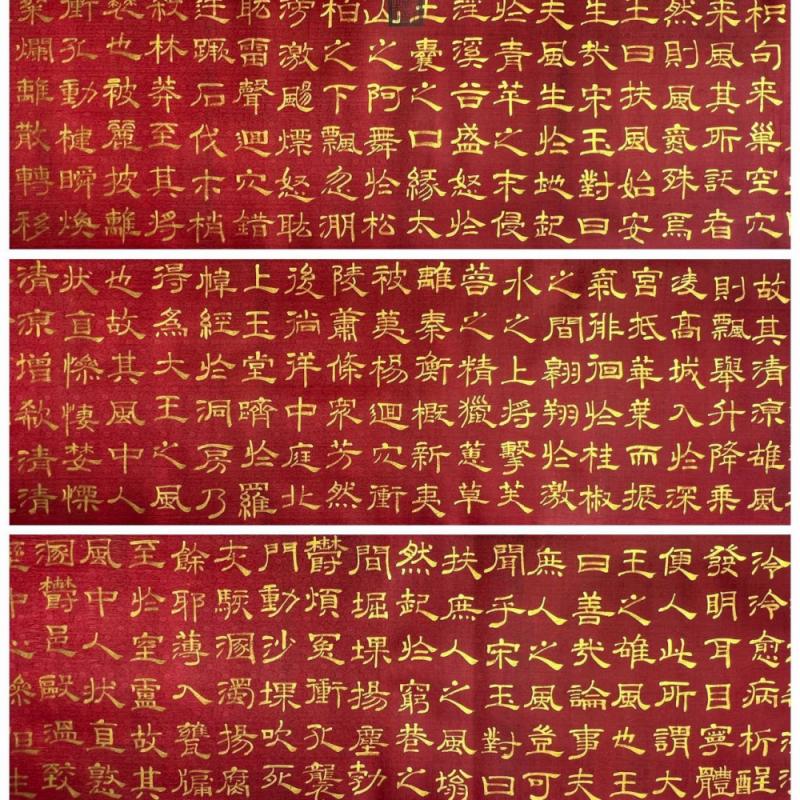 枳句来巢空穴
来風其所託者
然則風氣殊焉
王曰扶風始安
生哉宋玉對曰
夫風生於地起
於青苹之末侵
淫溪谷盛怒於
土囊之口緣太
山之阿舞於松
柏之下飄忽淜
滂激颺熛怒耾
耾雷聲迴穴錯
迕蹶石伐木梢
殺林莽至其將
衰也被麗披離
衝孔動楗瞬煥
粲爛離散轉移
故其清涼雄風
則飄舉升降乘
凌高城入於深
宮抵華葉而振
氣徘徊於桂椒
之間翱翔於激
水之上將擊芙
蓉之精獵蕙草
離秦衡概新夷
被荑楊迴穴衝
陵蕭條眾芳然
後徜徉中庭北
上玉堂躋於羅
幃經於洞房乃
得為大王之風
也故其風中人
狀直憯悽惏慄
清涼增欷清清
泠泠愈病析酲
發明耳目寧體
便人此所謂大
王之雄風也王
曰善哉論事夫
庶人之風豈可
聞乎宋玉對曰
扶庶人之風塕
然起於窮巷之
間堀堁揚塵勃
鬱煩冤衝孔襲
門動沙堁吹死
灰駭溷濁揚腐
餘邪薄入甕牖
至於室廬故其
風中人狀直憞
溷鬱邑毆溫致
中心慘怛生